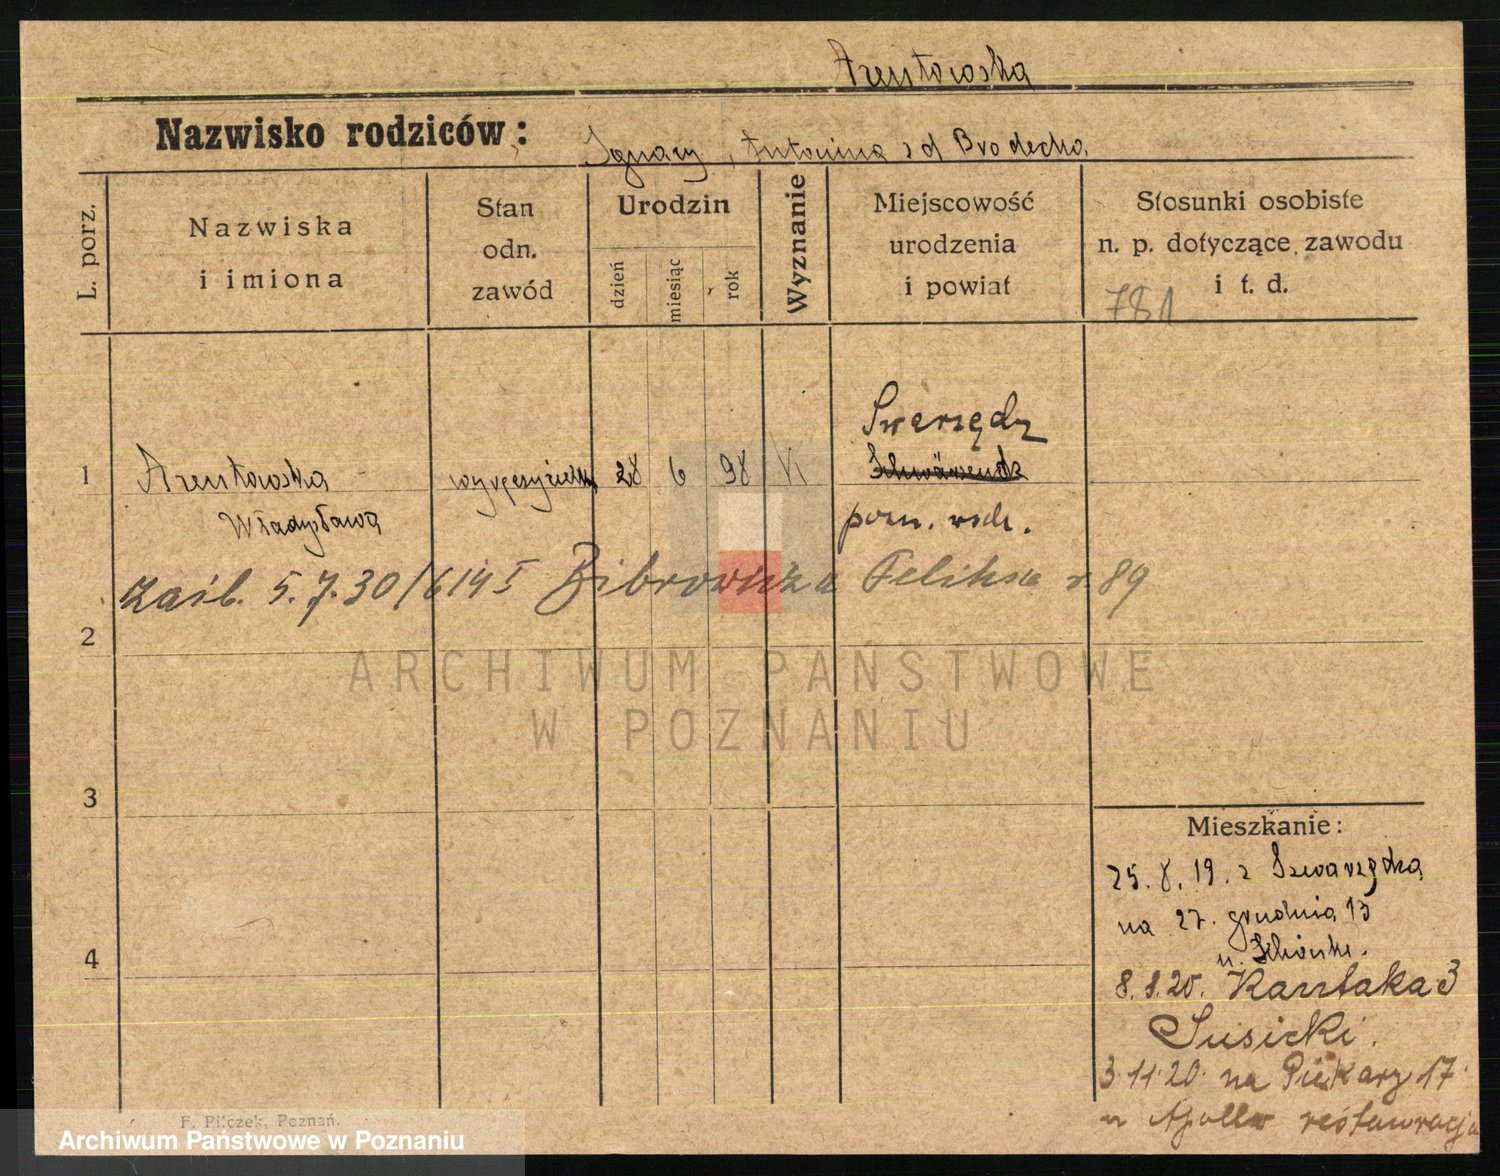 Arentowska
Nazwisko rodziców: Ignacy, Antonina z d Brodecka
L. porz.
Nazwiska
i imiona
Stan
odn.
zawód
Urodzin
dzień
miesiąc
rok
Wyznanie
Miejscowość
urodzenia
i powiat
Stosunki osobiste
n. p. dotyczące zawodu
i t. d.
781
Swerzędz
1 Arentowska 28 6 98 K
Władysława
pozn. wsch.
zaśl. 5.7.30/6145 Bibrowicza Feliksa r. 89
2
ARCHIWUM PAŃSTWOWE
W POZNANIU
3
Mieszkanie:
25. 8. 19. z Szwarzędza
na 27. grudnia 13
4
u.
8.1.20. Kantaka 3
Susicki.
3.11.20. na Piekary 17
u Apollo restauracja
F. Pilczek, Poznań.
Archiwum Państwowe w Poznaniu